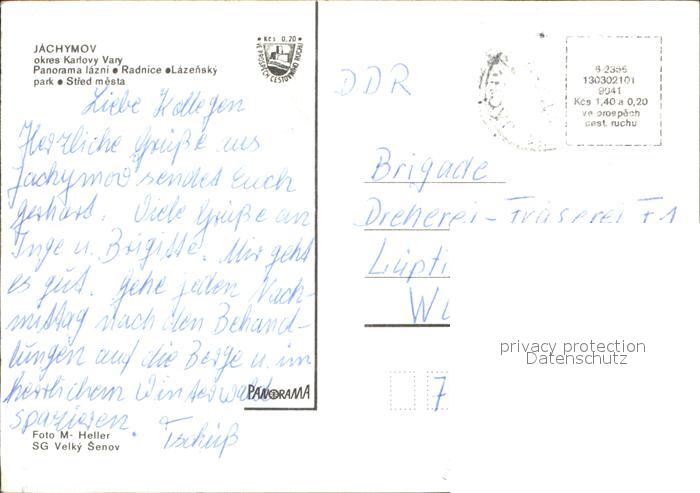 JÁCHYMOV
okres Karlovy Vary
Panorama lázní • Radnice • Lázeňský
park • Střed města
• Kčs 0,20 •
VE PROSPĚCH CESTOVNÍHO RUCHU
Liebe Kollegen
Herzliche Grüße aus
Jachymov sendet Euch
Gerhart. Viele Grüße an
Inge u. Brigitte. Mir geht
es gut. Gehe jeden Nach-
mittag nach den Behand-
lungen auf die Berge u. im
herrlichem Winterwald
spazieren. Tschüß
PANORAMA
Foto M- Heller
SG Velký Šenov
DDR
6-2356
130302101
9041
Kčs 1,40 a 0,20
ve prospěch
cest. ruchu
Brigade
Dreherei - Fräserei F1
privacy protection
Datenschutz
7